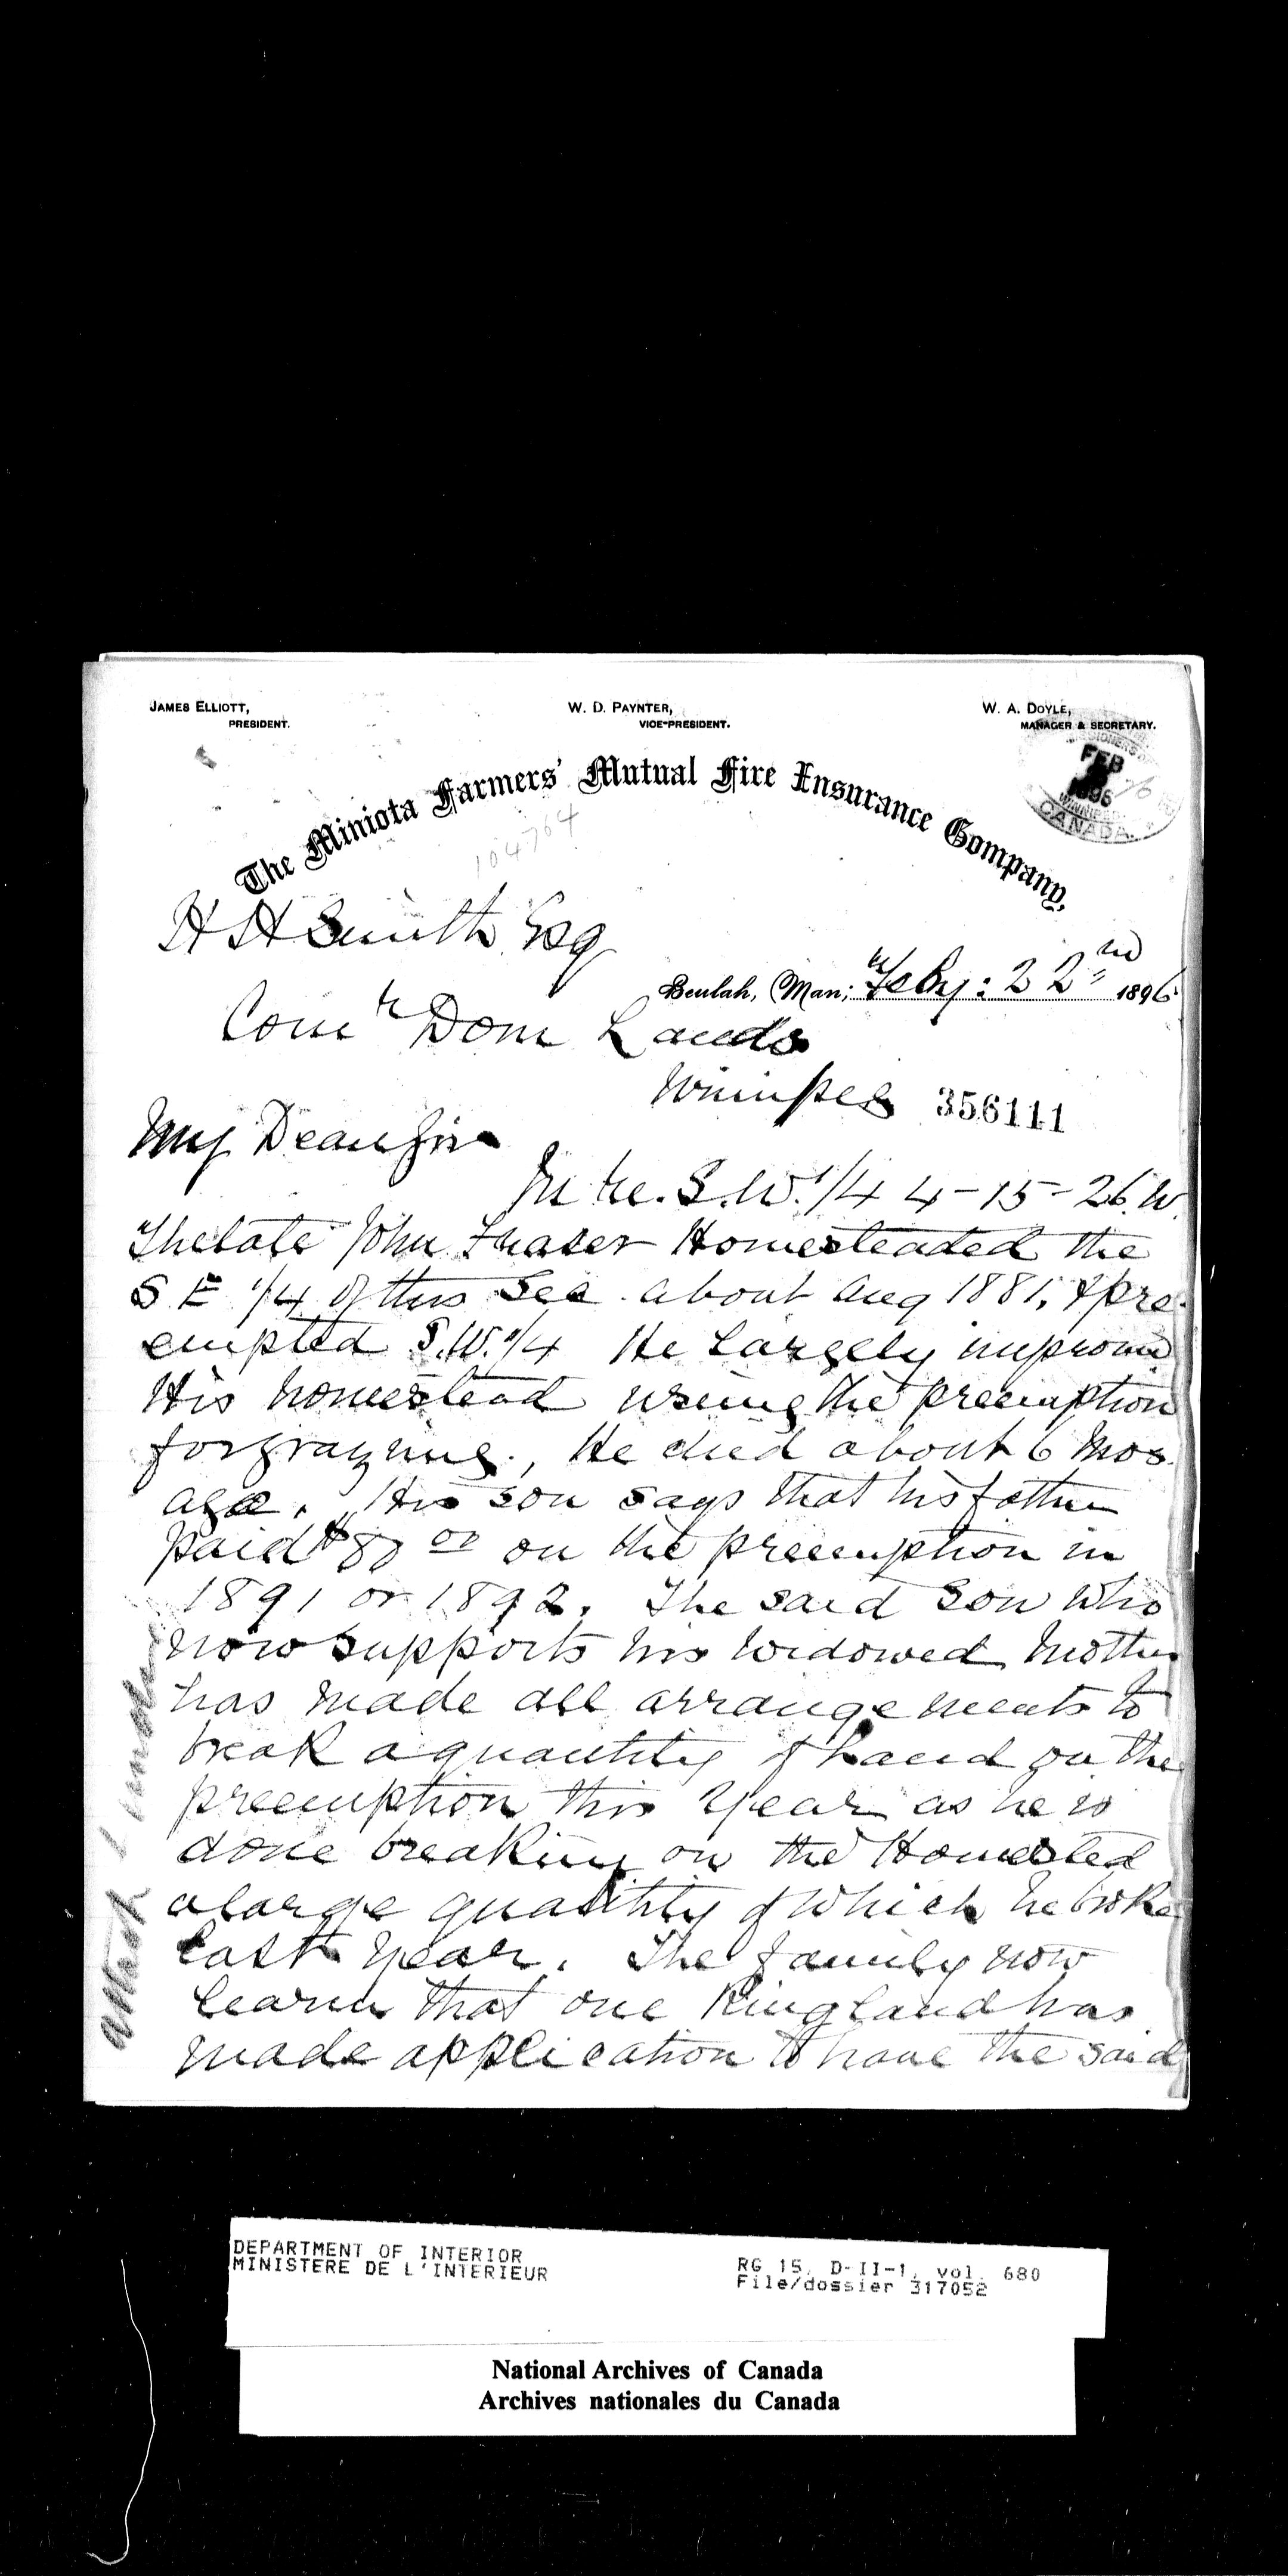 JAMES ELLIOTT,
PRESIDENT.
W. D. PAYNTER,
VICE-PRESIDENT.
W. A. DOYLE,
MANAGER & SECRETARY.
FEB
1896
WINNIPEG
CANADA
The Miniota Farmers' Mutual Fire Insurance Company,
104764
H H Smith Esq
Beulah, Man; Feby: 22nd 1896
Comr Dom Lands
Winnipeg 356111
My Dear Sir
In re. S.W. 1/4 4-15-26.W.
The late John Fraser Homesteaded the
S E 1/4 of this Sec about Aug 1881, & pre-
empted S.W. 1/4 He Largely improved
His homestead using the preemption
for grazing., He died about 6 Mos.
ago. His son says that his father
paid $80 00 on the preemption in
1891 or 1892. The said son who
now supports his widowed Mother
has made all arrangements to
break a quantity of Land on the
preemption this year as he is
done breaking on the Homested
a large quantity of which he broke
last year. The family now
learn that one Kingland has
made application to have the said
attach
DEPARTMENT OF INTERIOR
MINISTERE DE L'INTERIEUR
RG 15, D-II-1, vol. 680
File/dossier 317052
National Archives of Canada
Archives nationales du Canada